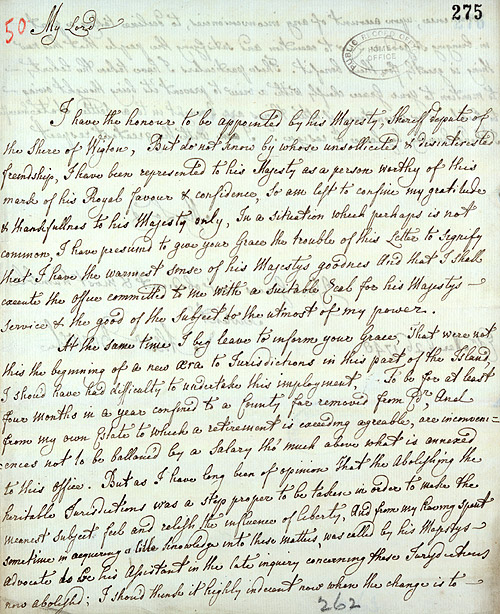 275
50 My Lord
PUBLIC RECORD OFFICE
I have the honour to be appointed by his Majesty, Sheriff depute of
the Shire of Wigton, But do not know by whose unsollicited & disinterested
freindship, I have been represented to his Majesty as a person worthy of this
mark of his Royal favour & confidence, So am left to confine my gratitude
& thankfullness to his Majesty only, In a situation which perhaps is not
common, I have presumed to give your Grace the trouble of this Letter to signify
that I have the warmest sense of his Majestys goodness And that I shall
execute the office committed to me with a suitable Zeal for his Majestys
Service & the good of the Subject to the utmost of my power.
At the same time I beg leave to inform your Grace, That were not
this the beginning of a new æra to Jurisdictions in this part of the Island,
I should have had difficulty to undertake this imployment, To be for at least
four months in a year confined to a County far removed from Edr, And
from my own Estate to which a retirement is exceeding agreable, are inconveni=
ences not to be ballanced by a Salary tho' much above what is annexed
to this office. But as I have long been of opinion That the Abolishing the
heritable Jurisdictions was a step proper to be taken in order to make the
meanest Subject feel and relish the influence of liberty, And from my having spent
sometime in acquiring a little knowledge into these matters, was called by his Majestys
advocate to be his Assistant in the late inquiry concerning these Jurisdictions
now abolished; I should think it highly indecent now when the change is to
262